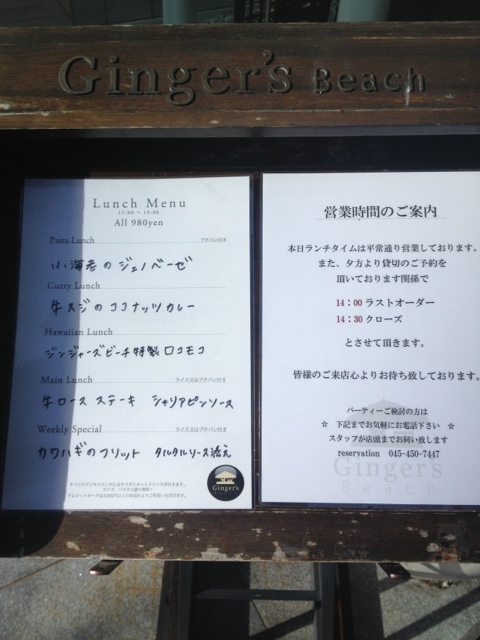 Ginger's Beach
Lunch Menu
11:00 ~ 15:00
All 980yen
Pasta Lunch プチパン付き
小海老のジェノベーゼ
Curry Lunch
牛スジのココナッツカレー
Hawaiian Lunch
ジンジャーズビーチ特製ロコモコ
Main Lunch ライス又はプチパン付き
牛ロースステーキ シャリアピンソース
Weekly Special ライス又はプチパン付き
カワハギのフリット タルタルソース添え
Ginger's
営業時間のご案内
本日ランチタイムは平常通り営業しております。
また、夕方より貸切のご予約を
頂いております関係で
14:00 ラストオーダー
14:30 クローズ
とさせて頂きます。
皆様のご来店心よりお待ち致しております。
パーティーご検討の方は
☆ 下記までお気軽にお電話下さい ☆
スタッフが店頭までお伺い致します
reservation 045-450-7447
Ginger's
Beach